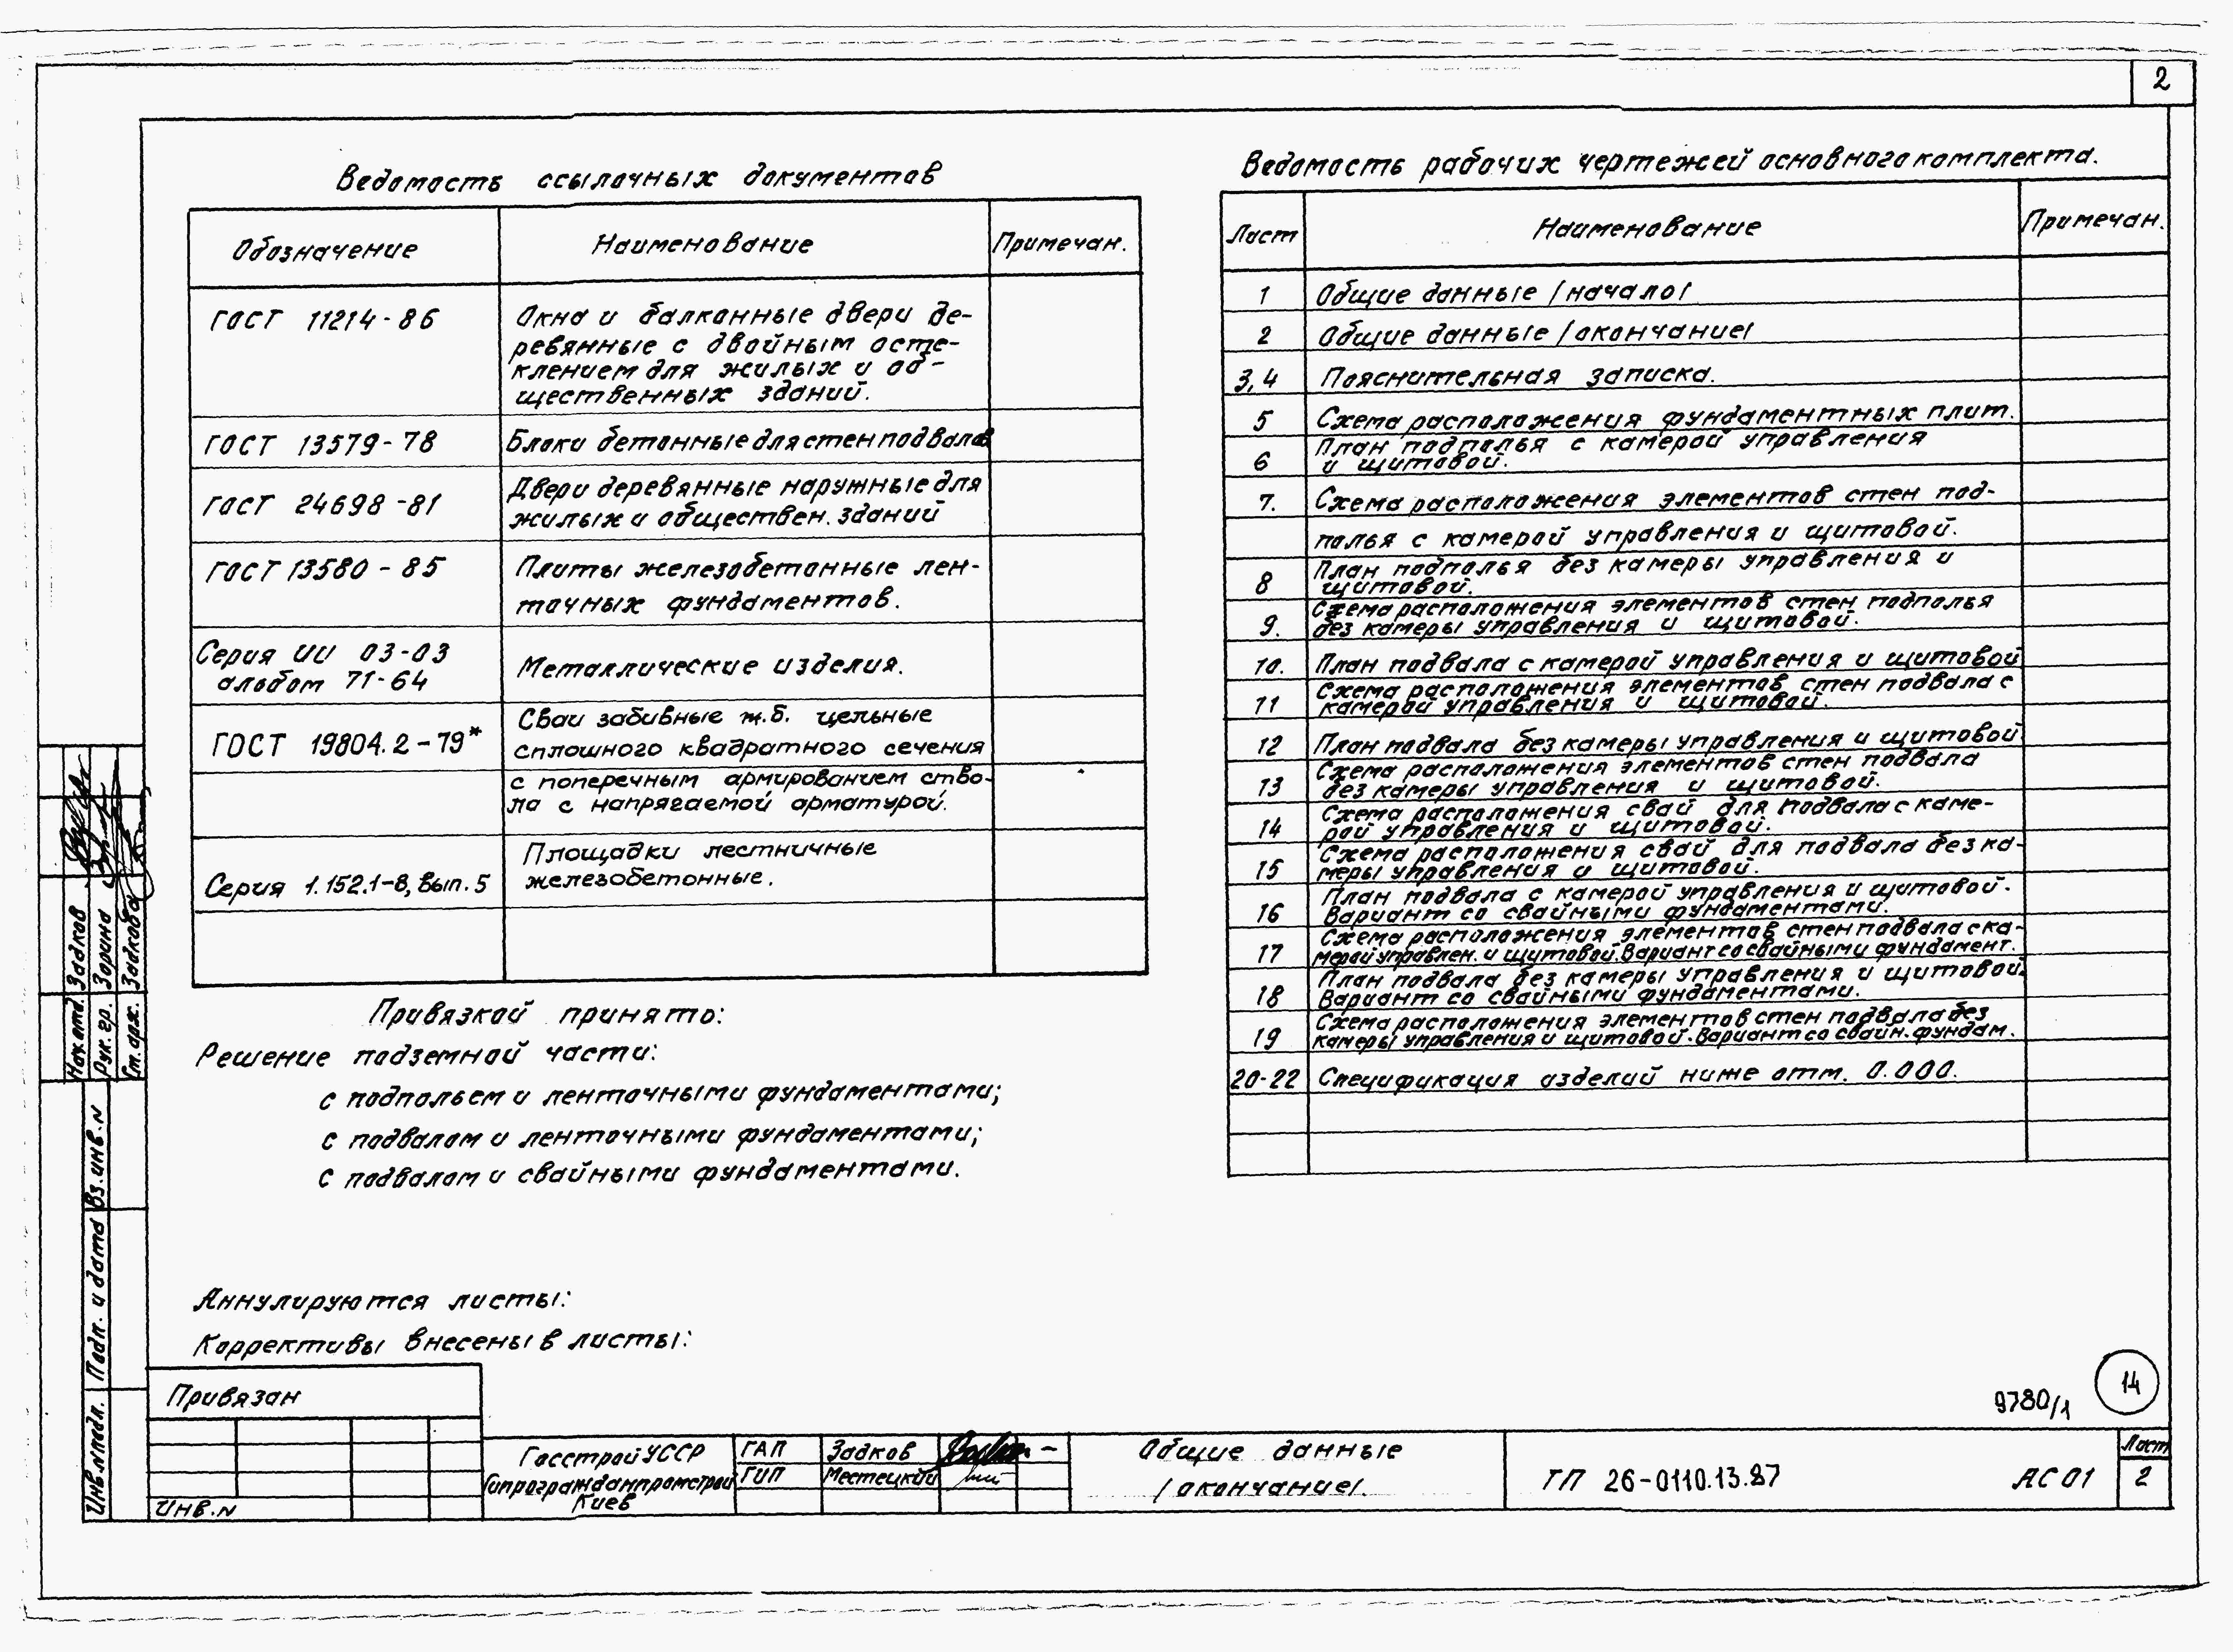 2
Ведомость ссылочных документов
Обозначение Наименование Примечан.
ГОСТ 11214-86 Окна и балконные двери де-
ревянные с двойным осте-
клением для жилых и об-
щественных зданий.
ГОСТ 13579-78 Блоки бетонные для стен подвалов
ГОСТ 24698-81 Двери деревянные наружные для
жилых и обществен. зданий
ГОСТ 13580-85 Плиты железобетонные лен-
точных фундаментов.
Серия ИИ 03-03
альбом 71-64 Металлические изделия.
ГОСТ 19804.2-79* Сваи забивные ж.б. цельные
сплошного квадратного сечения
с поперечным армированием ство-
ла с напрягаемой арматурой.
Серия 1.152.1-8, вып. 5 Площадки лестничные
железобетонные.
Привязкой принято:
Решение подземной части:
с подпольем и ленточными фундаментами;
с подвалом и ленточными фундаментами;
с подвалом и свайными фундаментами.
Аннулируются листы:
Коррективы внесены в листы:
Ведомость рабочих чертежей основного комплекта.
Лист Наименование Примечан.
1 Общие данные /начало/
2 Общие данные /окончание/
3,4 Пояснительная записка.
5 Схема расположения фундаментных плит.
6 План подполья с камерой управления
и щитовой.
7. Схема расположения элементов стен под-
полья с камерой управления и щитовой.
8 План подполья без камеры управления и
щитовой.
9. Схема расположения элементов стен подполья
без камеры управления и щитовой.
10. План подвала с камерой управления и щитовой
11 Схема расположения элементов стен подвала с
камерой управления и щитовой.
12 План подвала без камеры управления и щитовой.
13 Схема расположения элементов стен подвала
без камеры управления и щитовой.
14 Схема расположения свай для подвала с каме-
рой управления и щитовой.
15 Схема расположения свай для подвала без ка-
меры управления и щитовой.
16 План подвала с камерой управления и щитовой.
Вариант со свайными фундаментами.
17 Схема расположения элементов стен подвала с ка-
мерой управлен. и щитовой. Вариант со свайными фундамент.
18 План подвала без камеры управления и щитовой.
Вариант со свайными фундаментами.
19 Схема расположения элементов стен подвала без
камеры управления и щитовой. Вариант со свайн. фундам.
20-22 Спецификация изделий ниже отм. 0.000.
Нач. отд. Задков
Рук. гр. Зорина
Ст. арх. Задкова
Вз. инв. N
Подп. и дата
Инв. N подл.
Привязан
Инв. N
Госстрой УССР
Гипрогражданпромстрой
Киев
ГАП Задков
ГИП Местецкий
Общие данные
/окончание/.
ТП 26-0110.13.87 АС 01
Лист
2
9780/1
14